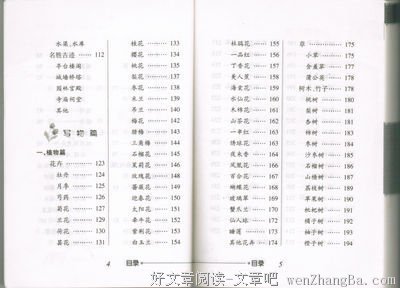 水渠,水库
名胜古迹 …… 112
亭台楼阁
城墙桥塔
园林宫殿
寺庙祠堂
其他
写物篇
一、植物篇
花卉 …… 123
牡丹 …… 124
月季 …… 125
芍药 …… 126
菊花 …… 127
兰花 …… 129
荷花 …… 130
昙花 …… 131
桂花 …… 133
樱花 …… 134
桃花 …… 135
梨花 …… 137
枣花 …… 138
木兰 …… 139
玉兰 …… 140
梅花 …… 141
腊梅 …… 142
三角梅 …… 144
石榴花 …… 145
茉莉花 …… 146
玫瑰花 …… 148
蔷薇花 …… 149
迎春花 …… 150
太阳花 …… 151
牵牛花 …… 152
紫荆花 …… 153
白玉兰 …… 154
4 目录
杜鹃花 …… 155
一品红 …… 156
丁香花 …… 157
美人蕉 …… 158
海棠花 …… 159
水仙花 …… 160
木棉花 …… 161
山茶花 …… 162
一串红 …… 163
绣球花 …… 164
夜来香 …… 165
凤凰花 …… 166
百合花 …… 167
蝴蝶花 …… 168
玻璃翠 …… 169
蟹爪兰 …… 170
仙人球 …… 172
睡莲 …… 173
其他花卉 …… 174
草 …… 175
小草 …… 175
含羞草 …… 177
蒲公英 …… 178
树木,竹子
桃树 …… 181
梨树 …… 182
杏树 …… 183
枣树 …… 184
沙枣树 …… 186
石榴树 …… 187
山楂树 …… 188
荔枝树 …… 190
苹果树 …… 191
枇杷树 …… 191
橘子树 …… 192
柚子树 …… 193
橙子树 …… 194
目录 5
好文章阅读-文章吧 wenZhangBa.com